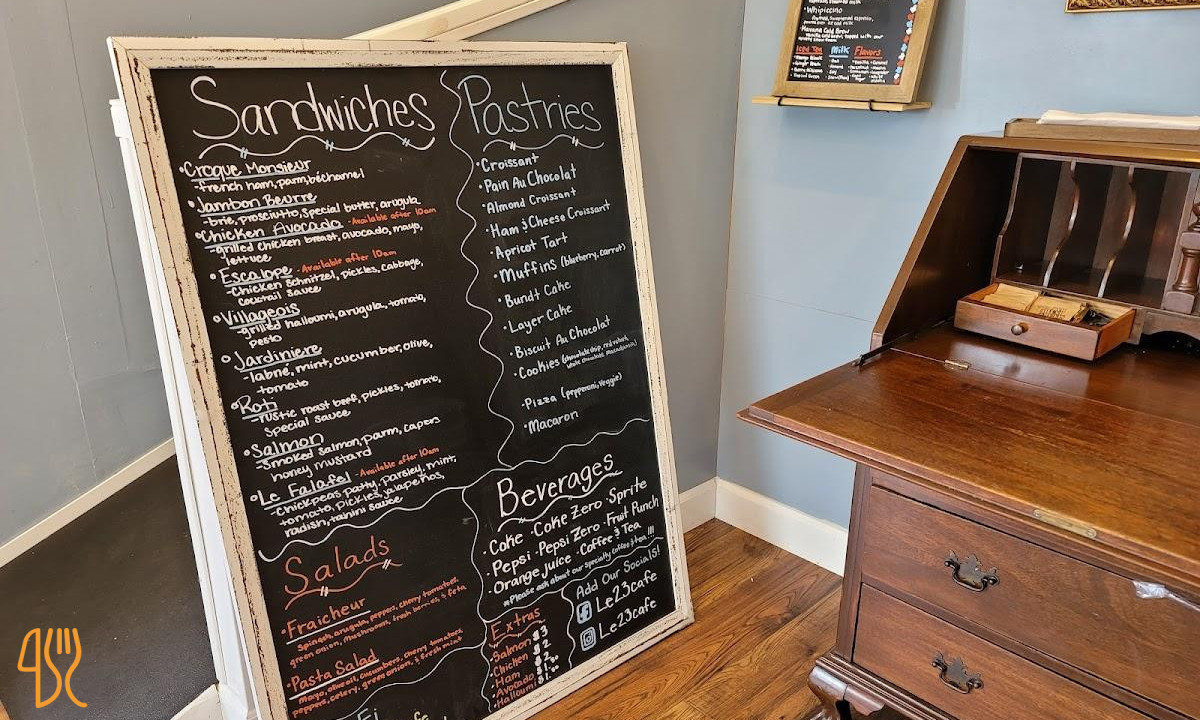 Sandwiches
•Croque Monsieur
-french ham, parm, béchamel
•Jambon Beurre
-brie, prosciutto, special butter, arugula
•Chicken Avocado -Available after 10am
-grilled chicken breast, avocado, mayo,
lettuce
•Escalope -Available after 10am
-Chicken schnitzel, pickles, cabbage,
cocktail sauce
•Villageois
-grilled halloumi, arugula, tomato,
pesto
•Jardiniere
-labne, mint, cucumber, olive,
-tomato
•Roti
-rustic roast beef, pickles, tomato,
special sauce
•Salmon
-Smoked salmon, parm, capers
honey mustard
•Le Falafel -Available after 10am
-Chickpeas patty, parsley, mint,
tomato, pickles, jalapeños,
radish, tahini sauce
Salads
•Fraicheur
Spinach, arugula, peppers, cherry tomatoes,
green onion, mushroom, fresh berries, & feta
•Pasta Salad
Mayo, olive oil, cucumbers, cherry tomatoes
peppers, celery, green onion, & fresh mint
Pastries
•Croissant
•Pain Au Chocolat
•Almond Croissant
•Ham & Cheese Croissant
•Apricot Tart
•Muffins (blueberry, carrot)
•Bundt Cake
•Layer Cake
•Biscuit Au Chocolat
•Cookies (chocolate chip, red velvet,
white chocolate macadamia)
•Pizza (pepperoni, veggie)
•Macaron
Beverages
•Coke •Coke Zero •Sprite
•Pepsi •Pepsi Zero •Fruit Punch
•Orange juice •Coffee & Tea
*Please ask about our specialty coffee & tea!!!
Extras
•Salmon $3
•Chicken $2
•Ham $2
•Avocado $1.50
•Halloumi $1.50
Add Our Socials!
Le23cafe
Le23cafe
•Whipiccino
Cold Brew
Iced Tea Milk Flavors